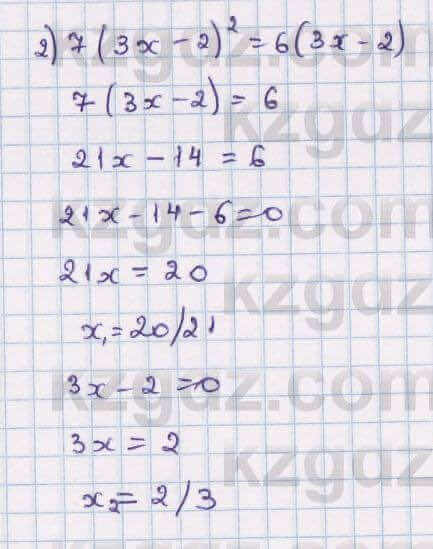 2) 7(3x - 2)² = 6(3x - 2)
7(3x - 2) = 6
21x - 14 = 6
21x - 14 - 6 = 0
21x = 20
x₁ = 20/21
3x - 2 = 0
3x = 2
x₂ = 2/3
kzgdz.com
kzgdz
kzgdz.com
kzgdz
kzgdz.com
kzgdz